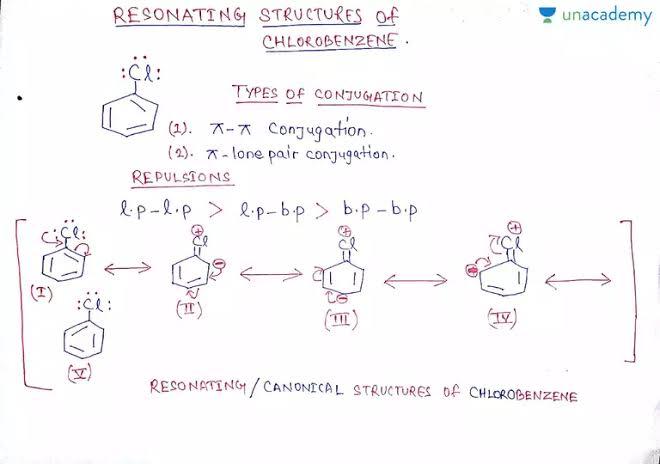 RESONATING STRUCTURES Of
unacademy
CHLOROBENZENE.
:Cl:
TYPES OF CONJUGATION
(1). π-π Conjugation.
(2). π-lone pair conjugation.
REPULSIONS
l.p-l.p > l.p-b.p > b.p-b.p
Cl: Cl Cl Cl
(I) (II) (III) (IV)
:Cl:
(V)
RESONATING/CANONICAL STRUCTURES OF CHLOROBENZENE